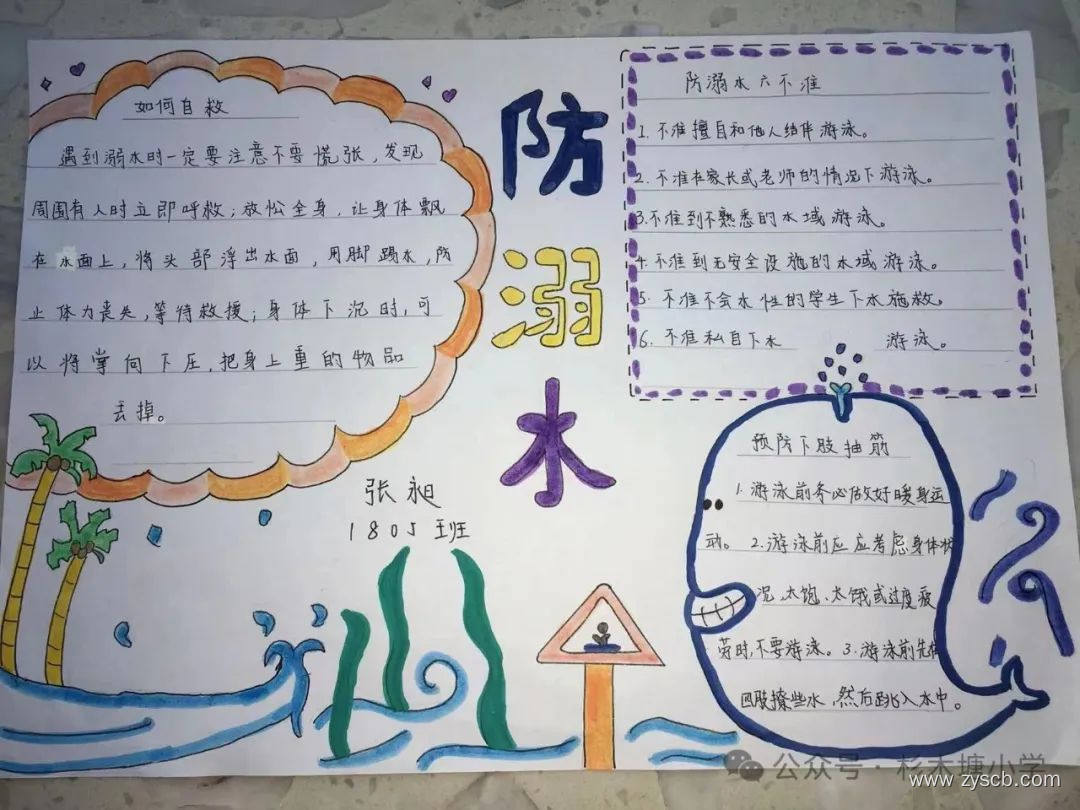 如何自救
遇到溺水时一定要注意不要慌张,发现
周围有人时立即呼救;放松全身,让身体飘
在水面上,将头部浮出水面,用脚踢水,防
止体力丧失,等待救援;身体下沉时,可
以将掌向下压,把身上重的物品
丢掉。
防
溺
水
张昶
1805班
防溺水六不准
1.不准擅自和他人结伴游泳。
2.不准在家长或老师的情况下游泳。
3.不准到不熟悉的水域游泳。
4.不准到无安全设施的水域游泳。
5.不准不会水性的学生下水施救。
6.不准私自下水 游泳。
预防下肢抽筋
1.游泳前务必做好暖身运
动。2.游泳前应应考虑身体状
况,太饱、太饿或过度疲
劳时,不要游泳。3.游泳前先在
四肢撩些水,然后跳入水中。
公众号·杉木塘小学
www.zyscb.com